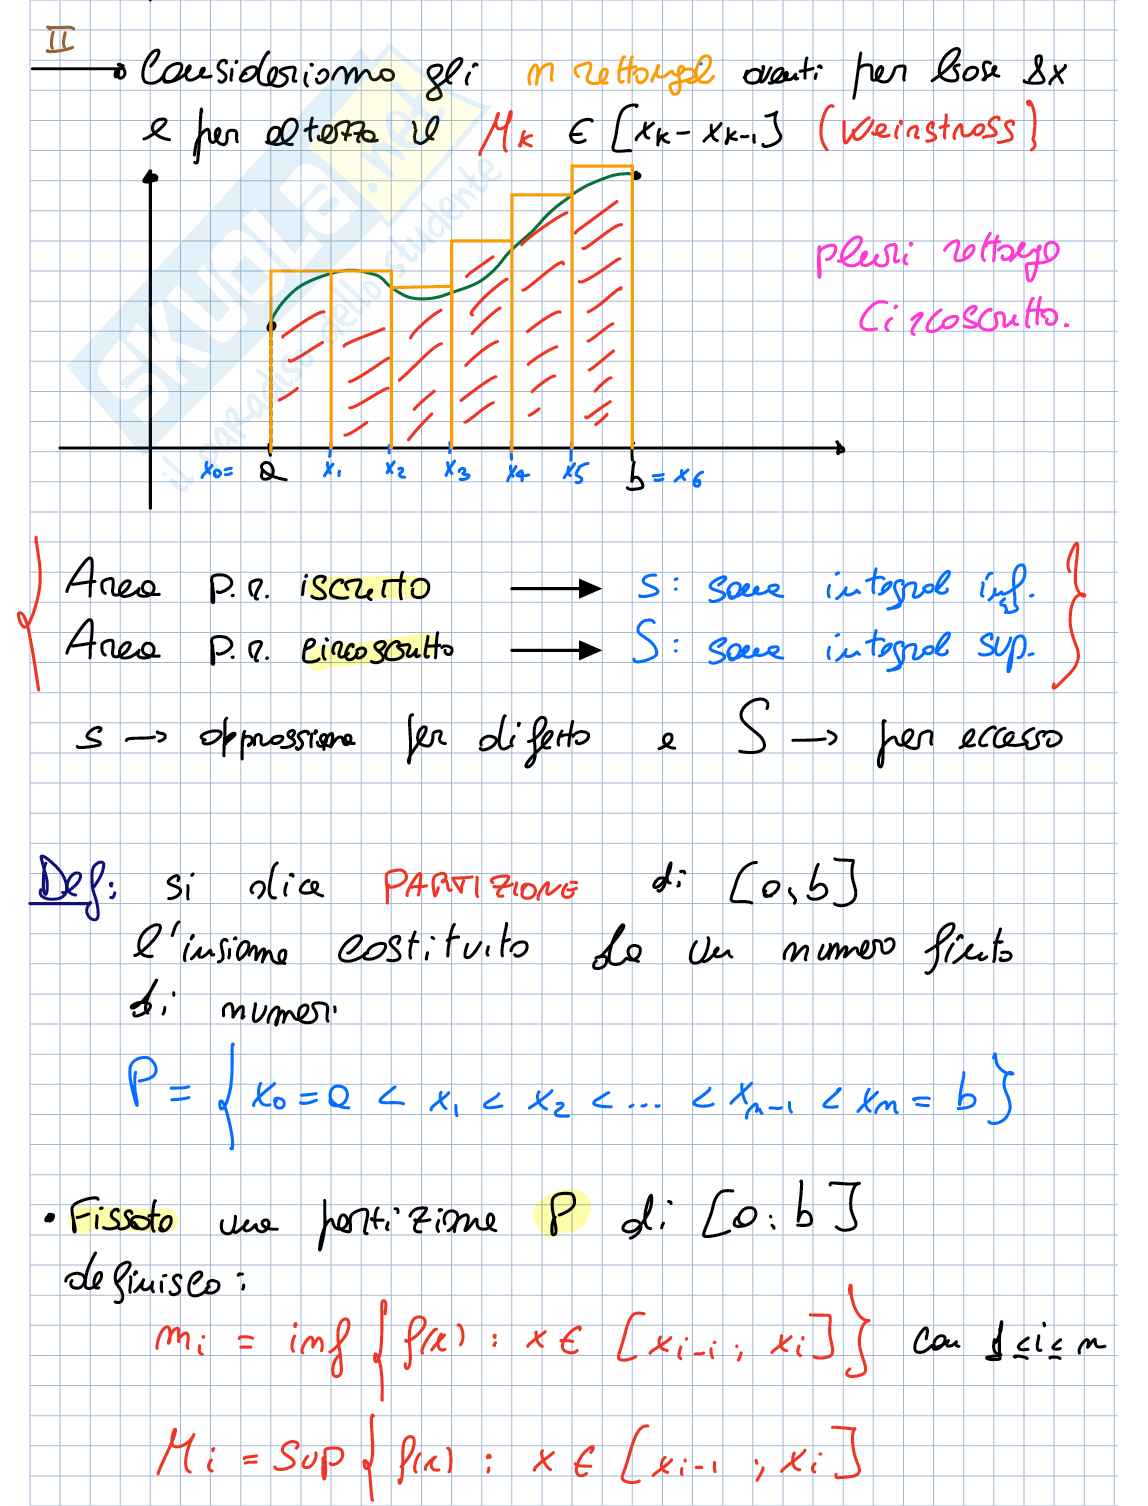 II
Consideriamo gli n rettangoli aventi per base Δx
e per altezza il M_K ∈ [x_K - x_K-1] (Weinstrass)
pluri rettango
Circoscritto.
x₀= a x₁ x₂ x₃ x₄ x₅ b = x₆
Area P.R. iscritto → s: somme integral inf.
Area P.R. circoscritto → S: somme integral sup.
s → approssima per difetto e S → per eccesso
Def: si dice PARTIZIONE di [a,b]
l'insieme costituito da un numero finito
di numeri
P = { x₀ = a < x₁ < x₂ < ... < x_n-1 < x_n = b }
• Fissato una partizione P di [a; b]
definisco:
m_i = inf { f(x) : x ∈ [x_i-i ; x_i] } con 1 ≤ i ≤ n
M_i = Sup { f(x) : x ∈ [x_i-1 ; x_i]
SKUOLA.NET
il paradiso dello studente